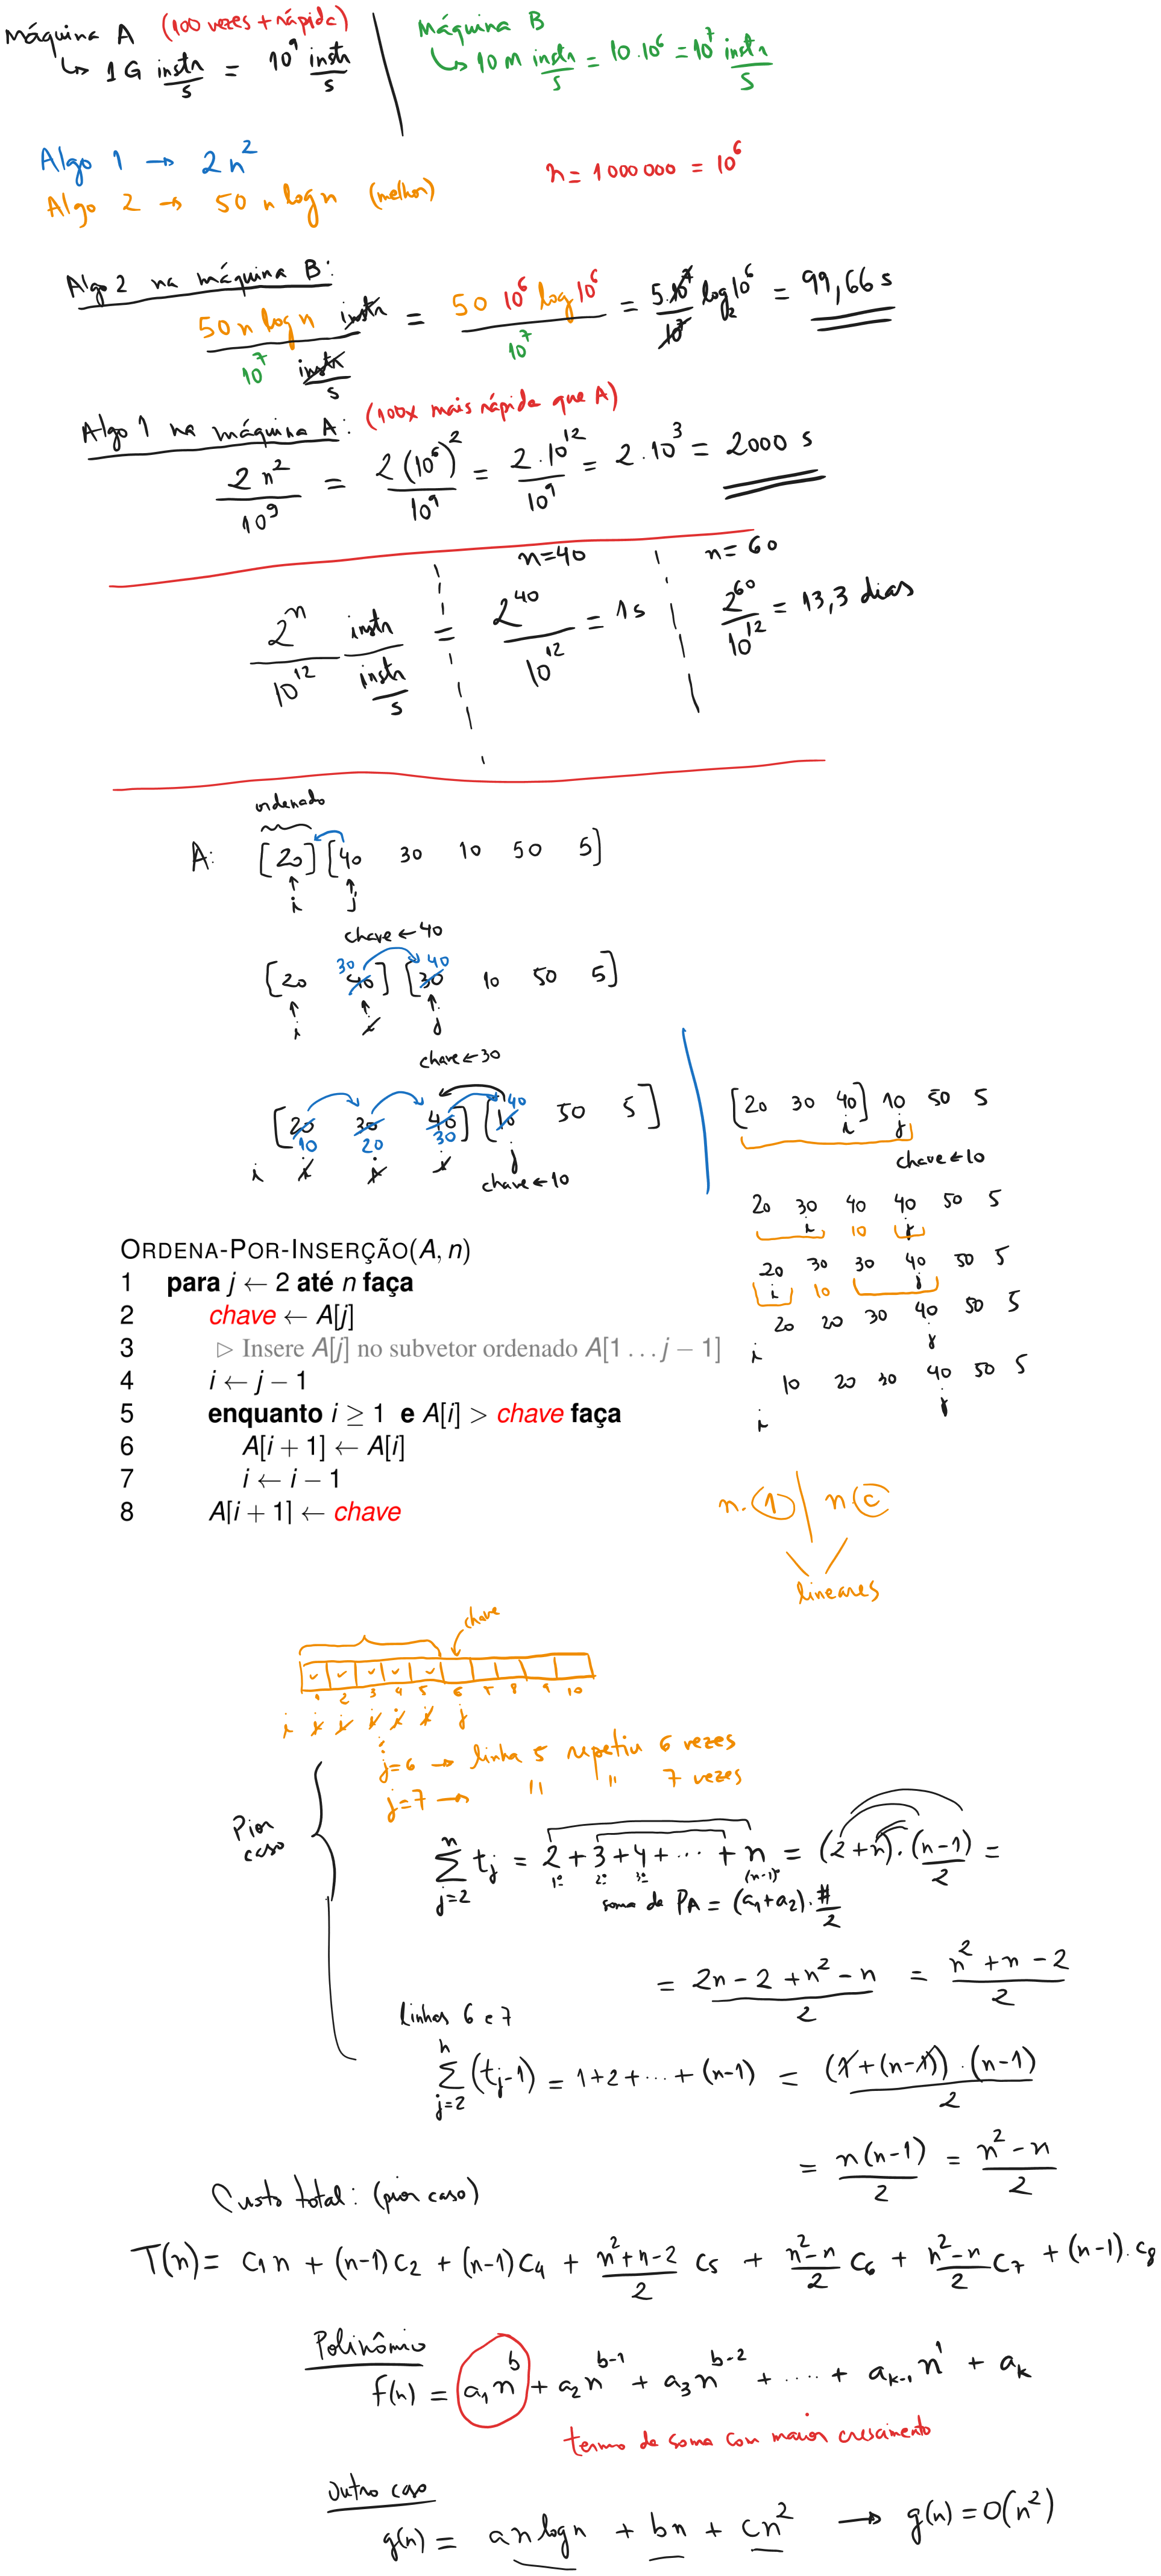 Máquina A (100 vezes + rápida)
↳ 1 G instr/s = 10^9 instr/s
Máquina B
↳ 10 M instr/s = 10.10^6 = 10^7 instr/s
Algo 1 → 2n^2
Algo 2 → 50 n log n (melhor)
n = 1 000 000 = 10^6
Algo 2 na máquina B:
50 n log n instr / 10^7 instr/s = 50 10^6 log 10^6 / 10^7 = 5.10^7 / 10^7 log_2 10^6 = 99,66 s
Algo 1 na máquina A: (100x mais rápida que A)
2 n^2 / 10^9 = 2 (10^6)^2 / 10^9 = 2 . 10^12 / 10^9 = 2 . 10^3 = 2000 s
n=40
n=60
2^n / 10^12 instr / instr/s = 2^40 / 10^12 = 1 s
2^60 / 10^12 = 13,3 dias
ordenado
A: [20] [40 30 10 50 5]
i j
chave ← 40
30 40
[20 40] [30 10 50 5]
i i j
chave ← 30
40
[20 30 40] [10 50 5]
10 20 30
i i i i j
chave ← 10
[20 30 40] 10 50 5
i j
chave ← 10
20 30 40 40 50 5
i 10 j
20 30 30 40 50 5
i 10 j
20 20 30 40 50 5
i j
10 20 30 40 50 5
i j
ORDENA-POR-INSERÇÃO(A, n)
1 para j ← 2 até n faça
2 chave ← A[j]
3 ▷ Insere A[j] no subvetor ordenado A[1 … j − 1]
4 i ← j − 1
5 enquanto i ≥ 1 e A[i] > chave faça
6 A[i + 1] ← A[i]
7 i ← i − 1
8 A[i + 1] ← chave
n.(1) | n(c)
lineares
chave
1 2 3 4 5 6 7 8 9 10
i i i i i i j
j=6 → linha 5 repetiu 6 vezes
j=7 → " " 7 vezes
Pior
caso
∑_{j=2}^{n} t_j = 2 + 3 + 4 + ⋯ + n = (2+n).(n-1)/2 =
1º 2º 3º (n-1)º
soma da PA = (a1+a2).#/2
= (2n − 2 + n^2 − n)/2 = (n^2 + n − 2)/2
linhas 6 e 7
∑_{j=2}^{n} (t_j-1) = 1+2+⋯+(n-1) = (1+(n-1)).(n-1)/2
= n(n-1)/2 = (n^2 − n)/2
Custo total: (pior caso)
T(n) = c1 n + (n-1)c2 + (n-1)c4 + (n^2+n-2)/2 c5 + (n^2-n)/2 c6 + (n^2-n)/2 c7 + (n-1).c8
Polinômio
f(n) = a1 n^b + a2 n^{b-1} + a3 n^{b-2} + ⋯ + a_{k-1} n^1 + a_k
termo da soma com maior crescimento
Outro caso
g(n) = an log n + bn + cn^2 → g(n) = O(n^2)